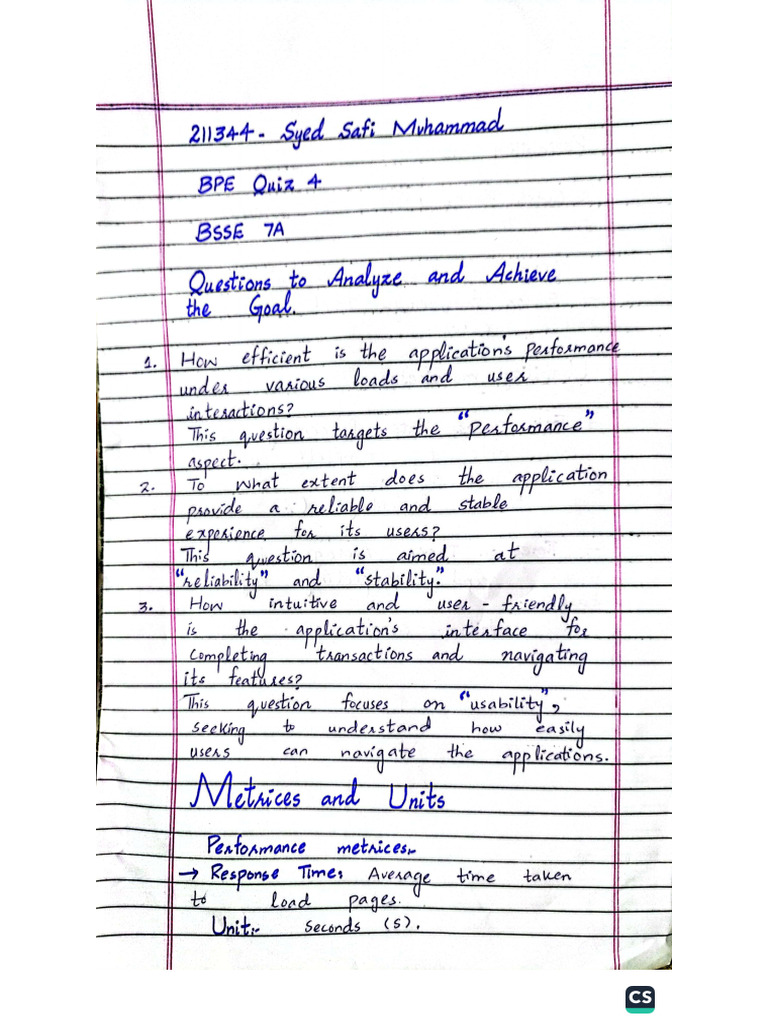 211344- Syed Safi Muhammad
BPE Quiz 4
BSSE 7A
Questions to Analyze and Achieve
the Goal.
1. How efficient is the application's performance
under various loads and user
interactions?
This question targets the "performance"
aspect.
2. To what extent does the application
provide a reliable and stable
experience for its users?
This question is aimed at
"reliability" and "stability."
3. How intuitive and user-friendly
is the application's interface for
completing transactions and navigating
its features?
This question focuses on "usability",
seeking to understand how easily
users can navigate the applications.
Metrices and Units
Performance metrices:-
→ Response Time: Average time taken
to load pages.
Unit:- Seconds (s).
CS